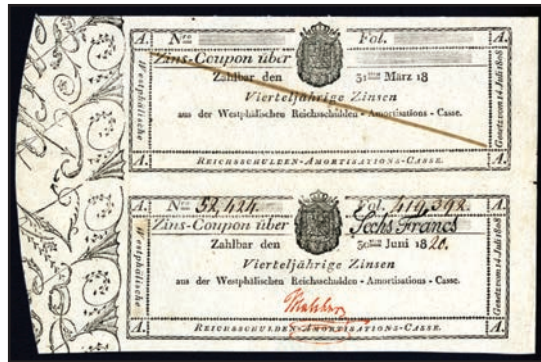 A. Nro Fol. A.
Zins-Coupon über
Zahlbar den 31ten März 18
Vierteljährige Zinsen
aus der Westphälischen Reichsschulden-Amortisations-Casse.
Westphälische
Gesetz vom 14. Juli 1808
A. REICHSSCHULDEN-AMORTISATIONS-CASSE. A.
A. Nro 52,424. Fol. 419,392. A.
Zins-Coupon über Sechs Francs
Zahlbar den 30ten Juni 1820.
Vierteljährige Zinsen
aus der Westphälischen Reichsschulden-Amortisations-Casse.
Westphälische
Gesetz vom 14. Juli 1808
A. REICHSSCHULDEN-AMORTISATIONS-CASSE. A.